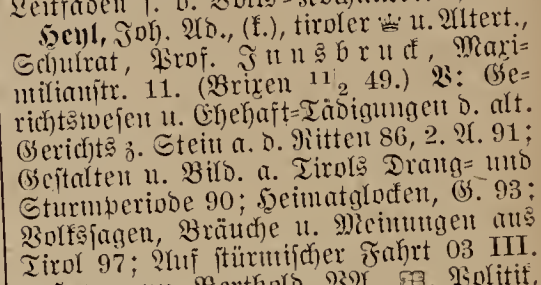 Heyl, Joh. Ad., (k.), tiroler u. Altert.,
Schulrat, Prof. Innsbruck, Maxi=
milianstr. 11. (Brixen 11|2 49.) V: Ge=
richtswesen u. Ehehaft=Tädigungen d. alt.
Gerichts z. Stein a. d. Ritten 86, 2. A. 91;
Gestalten u. Bild. a. Tirols Drang= und
Sturmperiode 90; Heimatglocken, G. 93;
Volkssagen, Bräuche u. Meinungen aus
Tirol 97; Auf stürmischer Fahrt 03 III.
Politik,